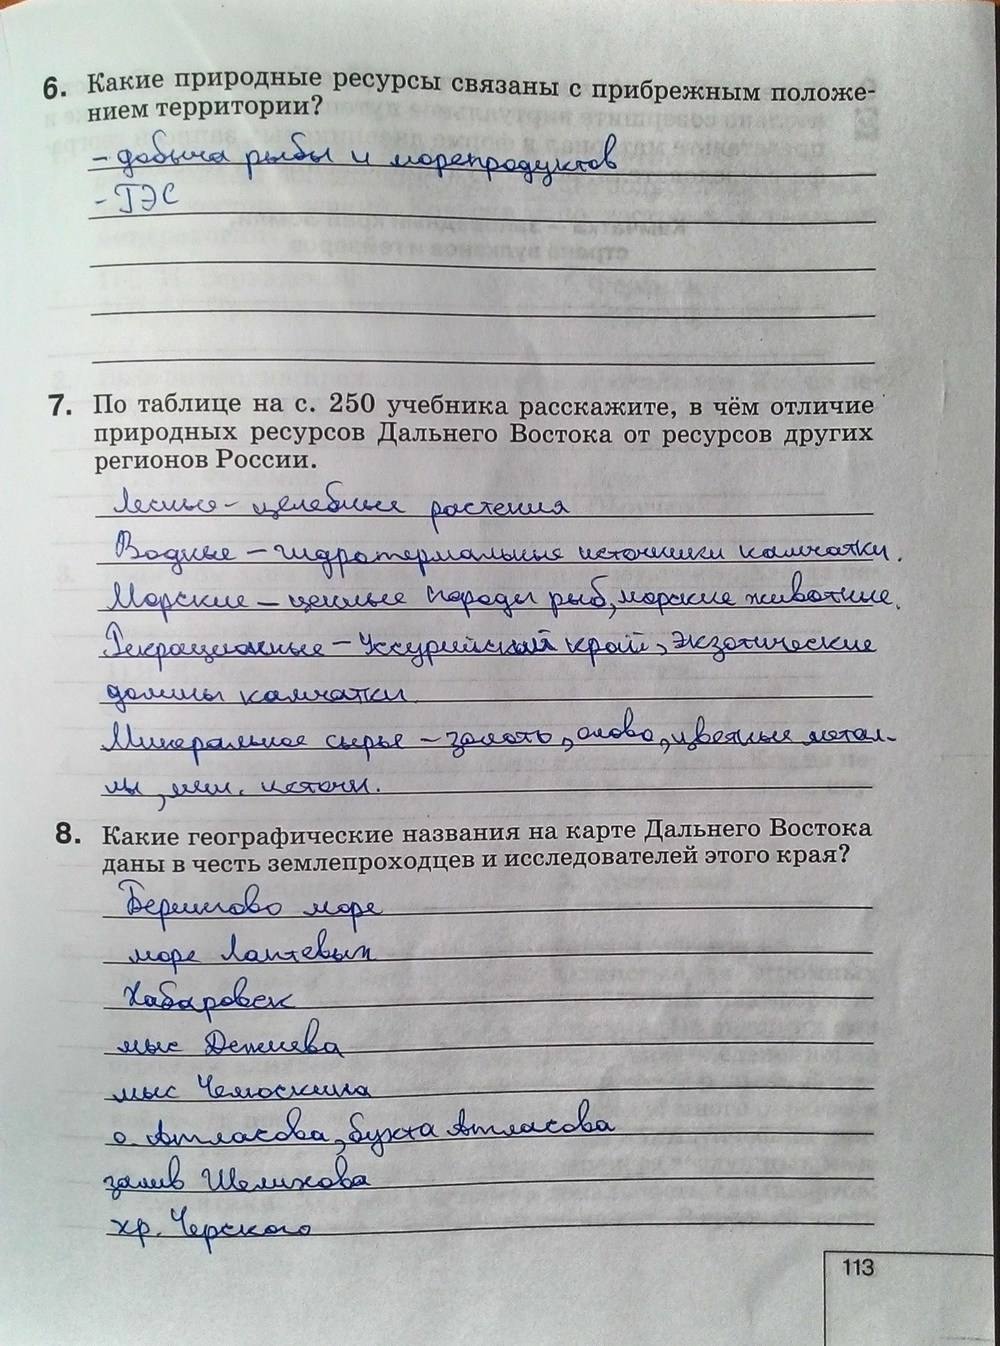 6. Какие природные ресурсы связаны с прибрежным положе-
нием территории?
- добыча рыбы и морепродуктов
- ГЭС
7. По таблице на с. 250 учебника расскажите, в чём отличие
природных ресурсов Дальнего Востока от ресурсов других
регионов России.
Лесные - целебные растения
Водные - гидротермальные источники камчатки.
Морские - ценные породы рыб, морские животные.
Рекрационные - Уссурийский край, экзотические
долины камчатки
Минеральное сырье - золото, олово, цветные метал-
лы, мин. источн.
8. Какие географические названия на карте Дальнего Востока
даны в честь землепроходцев и исследователей этого края?
Берингово море
море Лаптевых
Хабаровск
мыс Дежнева
мыс Челюскина
о. Атласова, бухта Атласова
залив Шелихова
хр. Черского
113